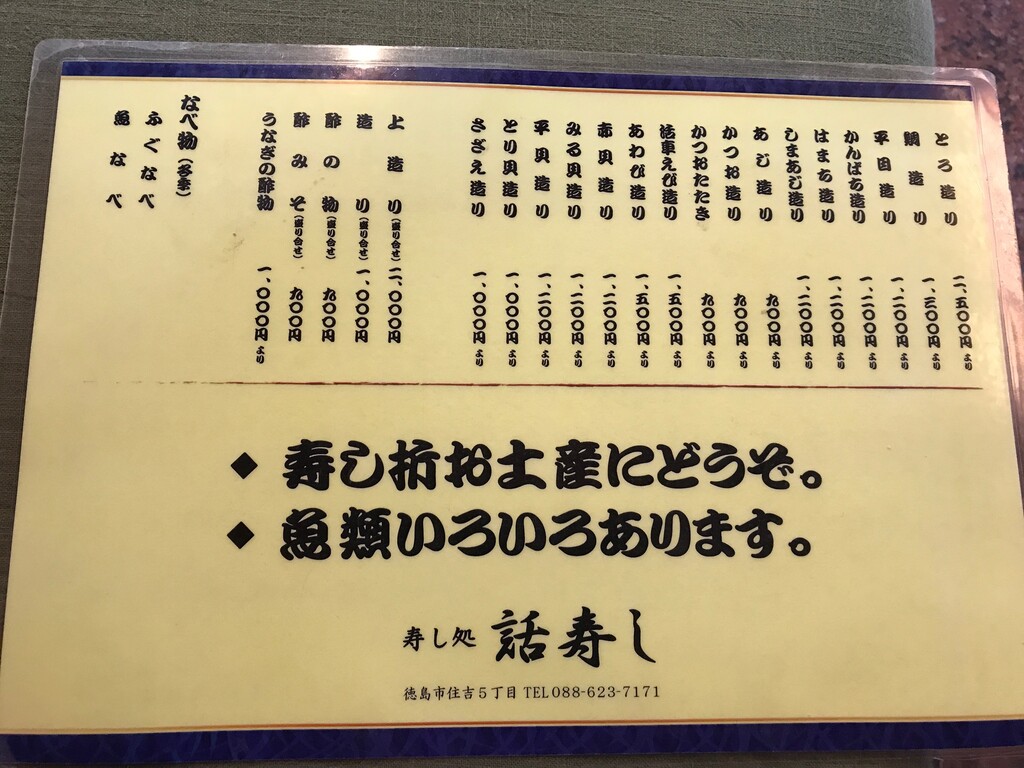 とろ造り 二、五〇〇円より
鯛造り 一、三〇〇円より
平目造り 一、二〇〇円より
かんぱち造り 一、二〇〇円より
はまち造り 一、二〇〇円より
しまあじ造り 一、二〇〇円より
あじ造り 九〇〇円より
かつお造り 九〇〇円より
かつおたたき 九〇〇円より
活車えび造り 一、五〇〇円より
あわび造り 一、五〇〇円より
赤貝造り 一、二〇〇円より
みる貝造り 一、二〇〇円より
平貝造り 一、二〇〇円より
とり貝造り 一、〇〇〇円より
さざえ造り 一、〇〇〇円より
上造り(盛り合せ) 二、〇〇〇円
造り(盛り合せ) 一、〇〇〇円
酢の物(盛り合せ) 九〇〇円
酢みそ(盛り合せ) 九〇〇円
うなぎの酢物 一、〇〇〇円より
なべ物(冬季)
ふぐなべ
魚なべ
◆ 寿し折お土産にどうぞ。
◆ 魚類いろいろあります。
寿し処 話寿し
徳島市住吉5丁目 TEL 088-623-7171